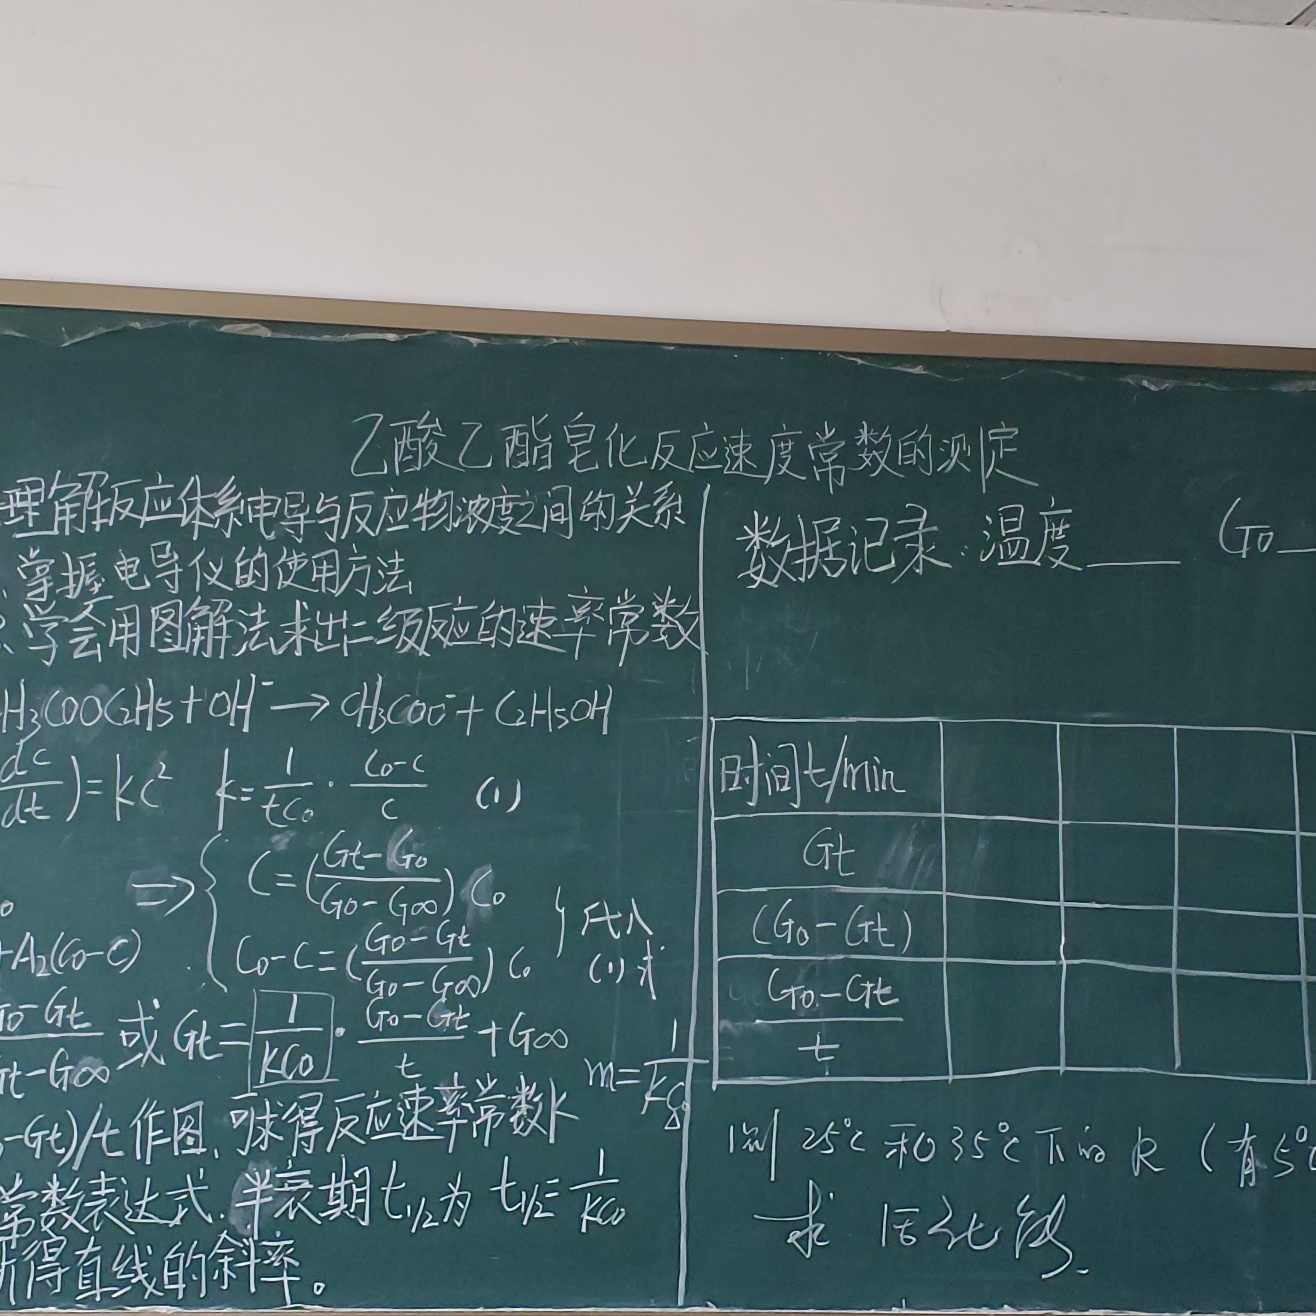 乙酸乙酯皂化反应速度常数的测定
理解反应体系电导与反应物浓度之间的关系
、掌握电导仪的使用方法
、学会用图解法求出二级反应的速率常数
H₃COOC₂H₅+OH⁻→CH₃COO⁻+C₂H₅OH
dc/dt)=kc² k=1/tC₀·(C₀-C)/C (1)
⇒{C=((Gt-G₀)/(G₀-G∞))C₀
+A₂(C₀-C) C₀-C=((G₀-Gt)/(G₀-G∞))C₀ }代入(1)式
G₀-Gt/Gt-G∞ 或 Gt=1/KC₀·(G₀-Gt)/t+G∞ m=1/KC₀
-Gt)/t作图,可求得反应速率常数K
常数表达式.半衰期t₁/₂为 t₁/₂=1/KC₀
所得直线的斜率。
数据记录:温度___ G₀_
时间t/min
Gt
(G₀-Gt)
(G₀-Gt)/t
测 25℃和35℃下的k(有5℃
求 活化能.